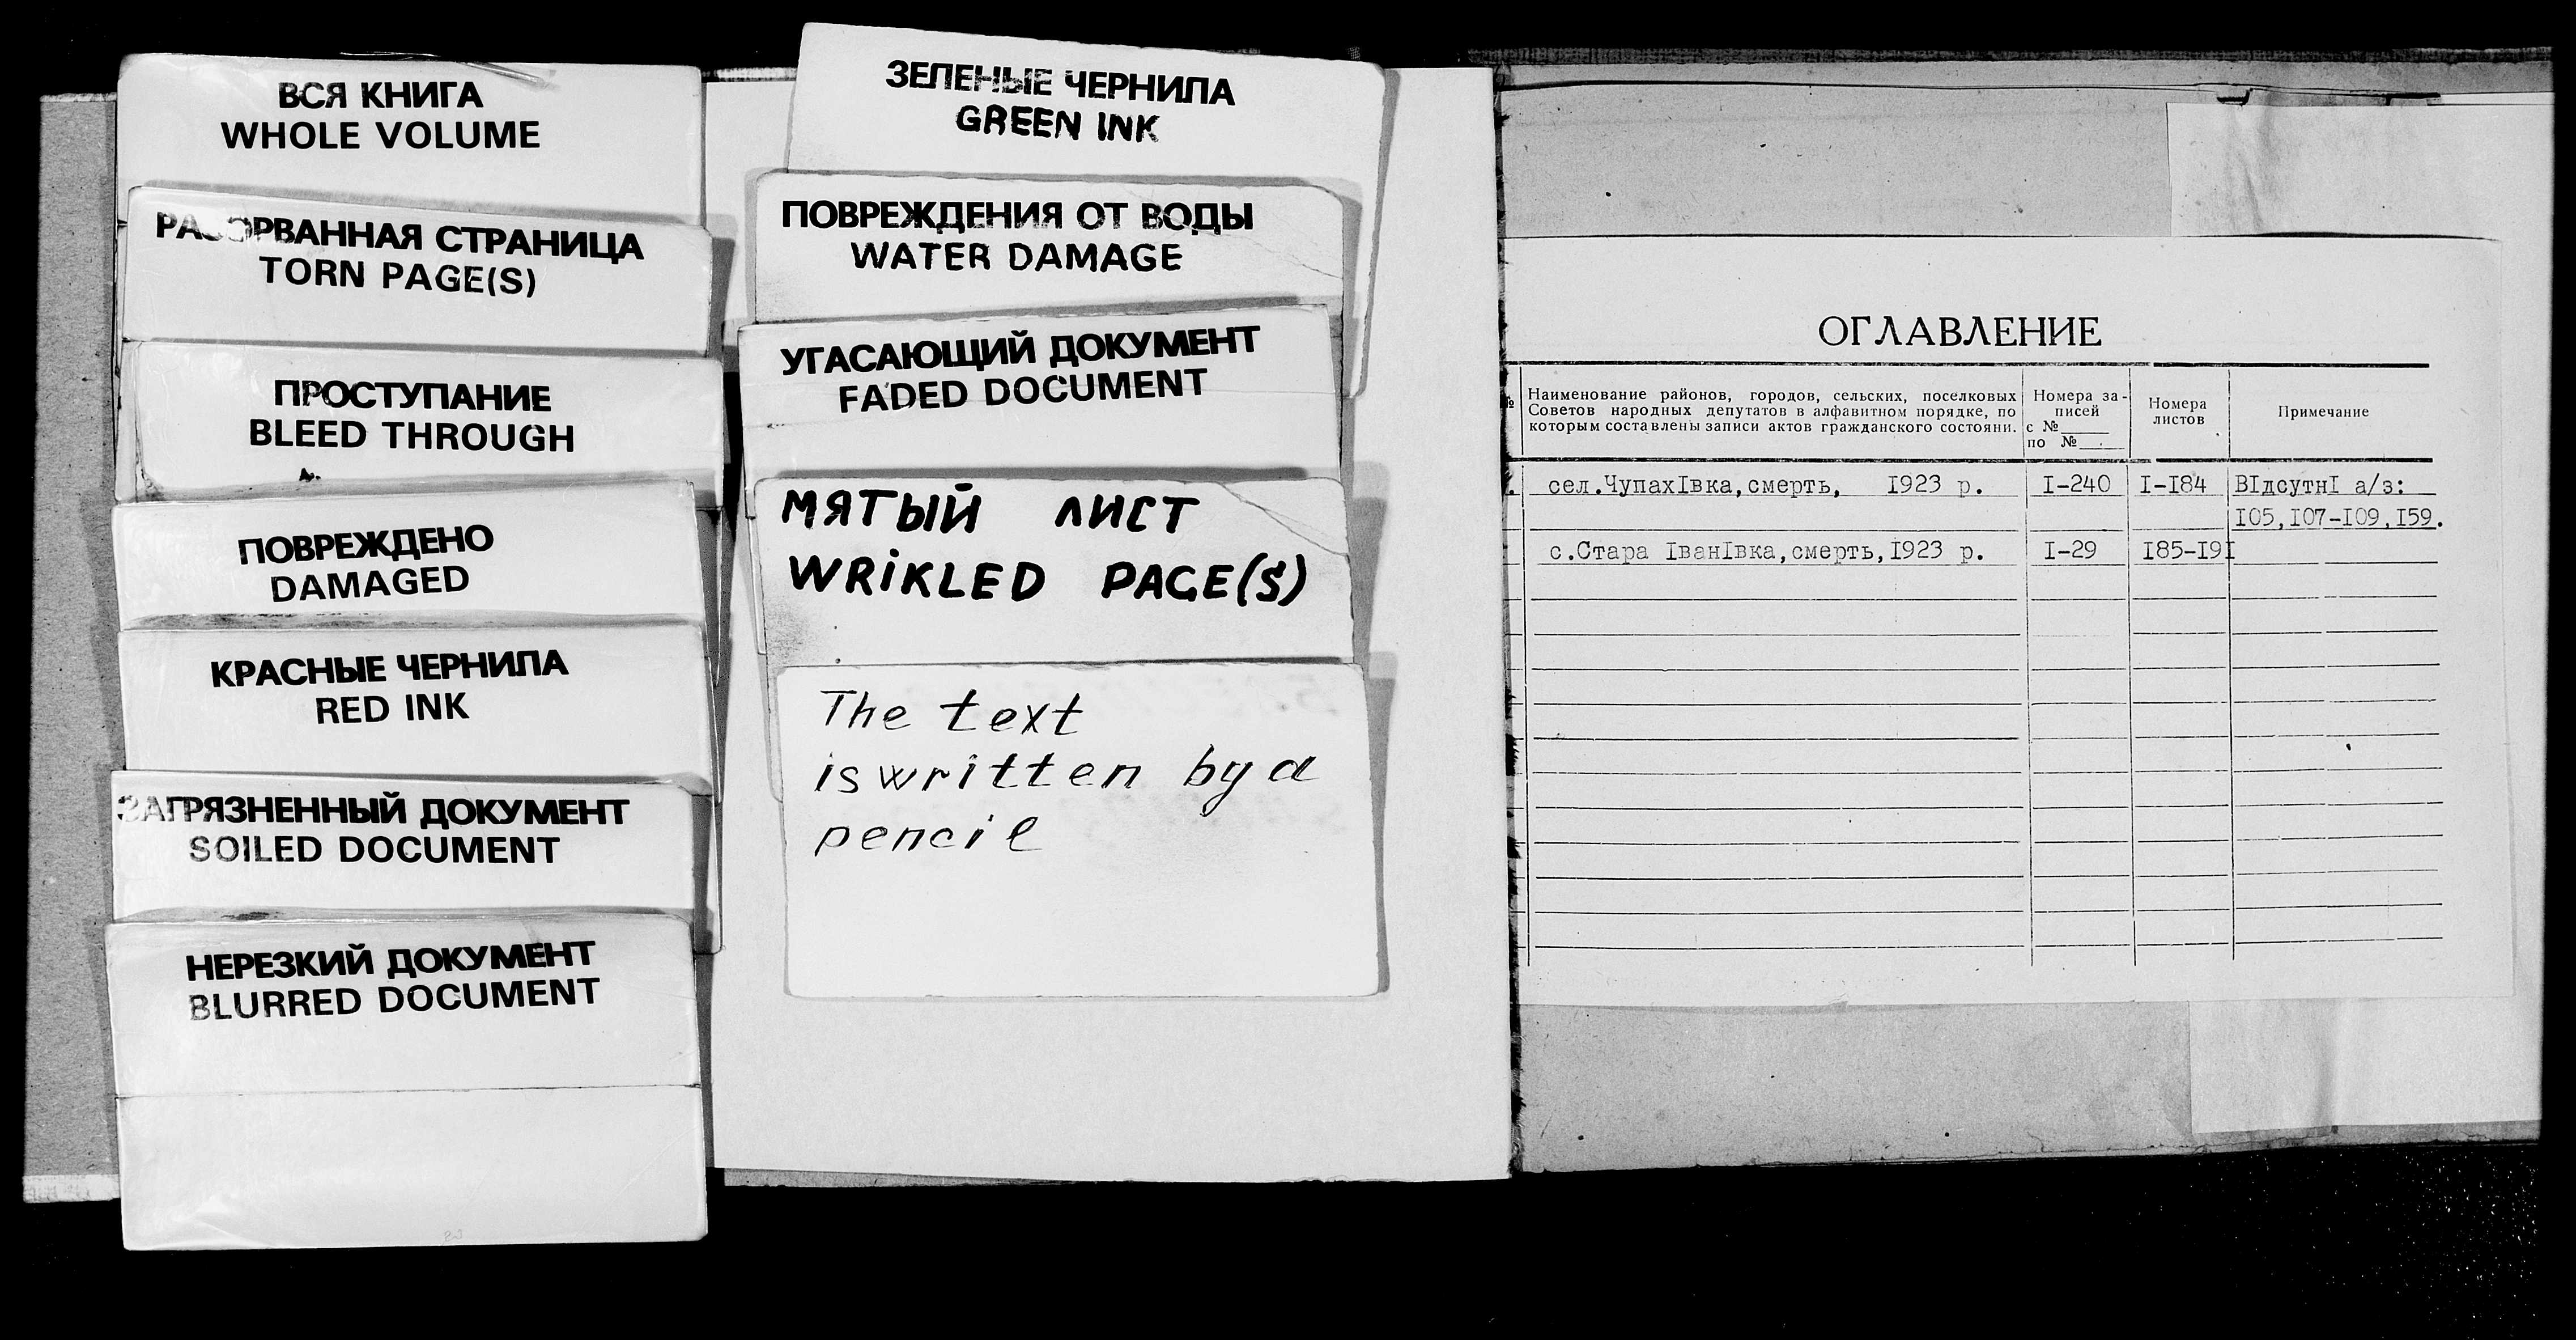 ВСЯ КНИГА
WHOLE VOLUME
РАЗОРВАННАЯ СТРАНИЦА
TORN PAGE(S)
ПРОСТУПАНИЕ
BLEED THROUGH
ПОВРЕЖДЕНО
DAMAGED
КРАСНЫЕ ЧЕРНИЛА
RED INK
ЗАГРЯЗНЕННЫЙ ДОКУМЕНТ
SOILED DOCUMENT
НЕРЕЗКИЙ ДОКУМЕНТ
BLURRED DOCUMENT
ЗЕЛЕНЫЕ ЧЕРНИЛА
GREEN INK
ПОВРЕЖДЕНИЯ ОТ ВОДЫ
WATER DAMAGE
УГАСАЮЩИЙ ДОКУМЕНТ
FADED DOCUMENT
МЯТЫЙ ЛИСТ
WRIKLED PAGE(S)
The text
is written by a
pencil
ОГЛАВЛЕНИЕ
Наименование районов, городов, сельских, поселковых
Советов народных депутатов в алфавитном порядке, по
которым составлены записи актов гражданского состояни.
Номера за-
писей
с №____
по №____
Номера
листов
Примечание
сел.ЧупахIвка,смерть, I923 р. I-240 I-I84 ВIдсутнI а/з:
I05,I07-I09,I59.
с.Стара IванIвка,смерть,I923 р. I-29 I85-I9I